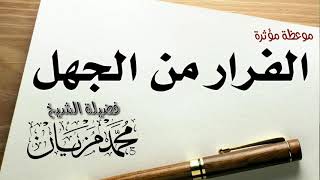 موعظة مؤثرة
الفرار من الجهل
فضيلة الشيخ
محمد مزيان